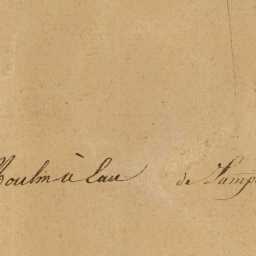 Moulin à Eau de Pamp